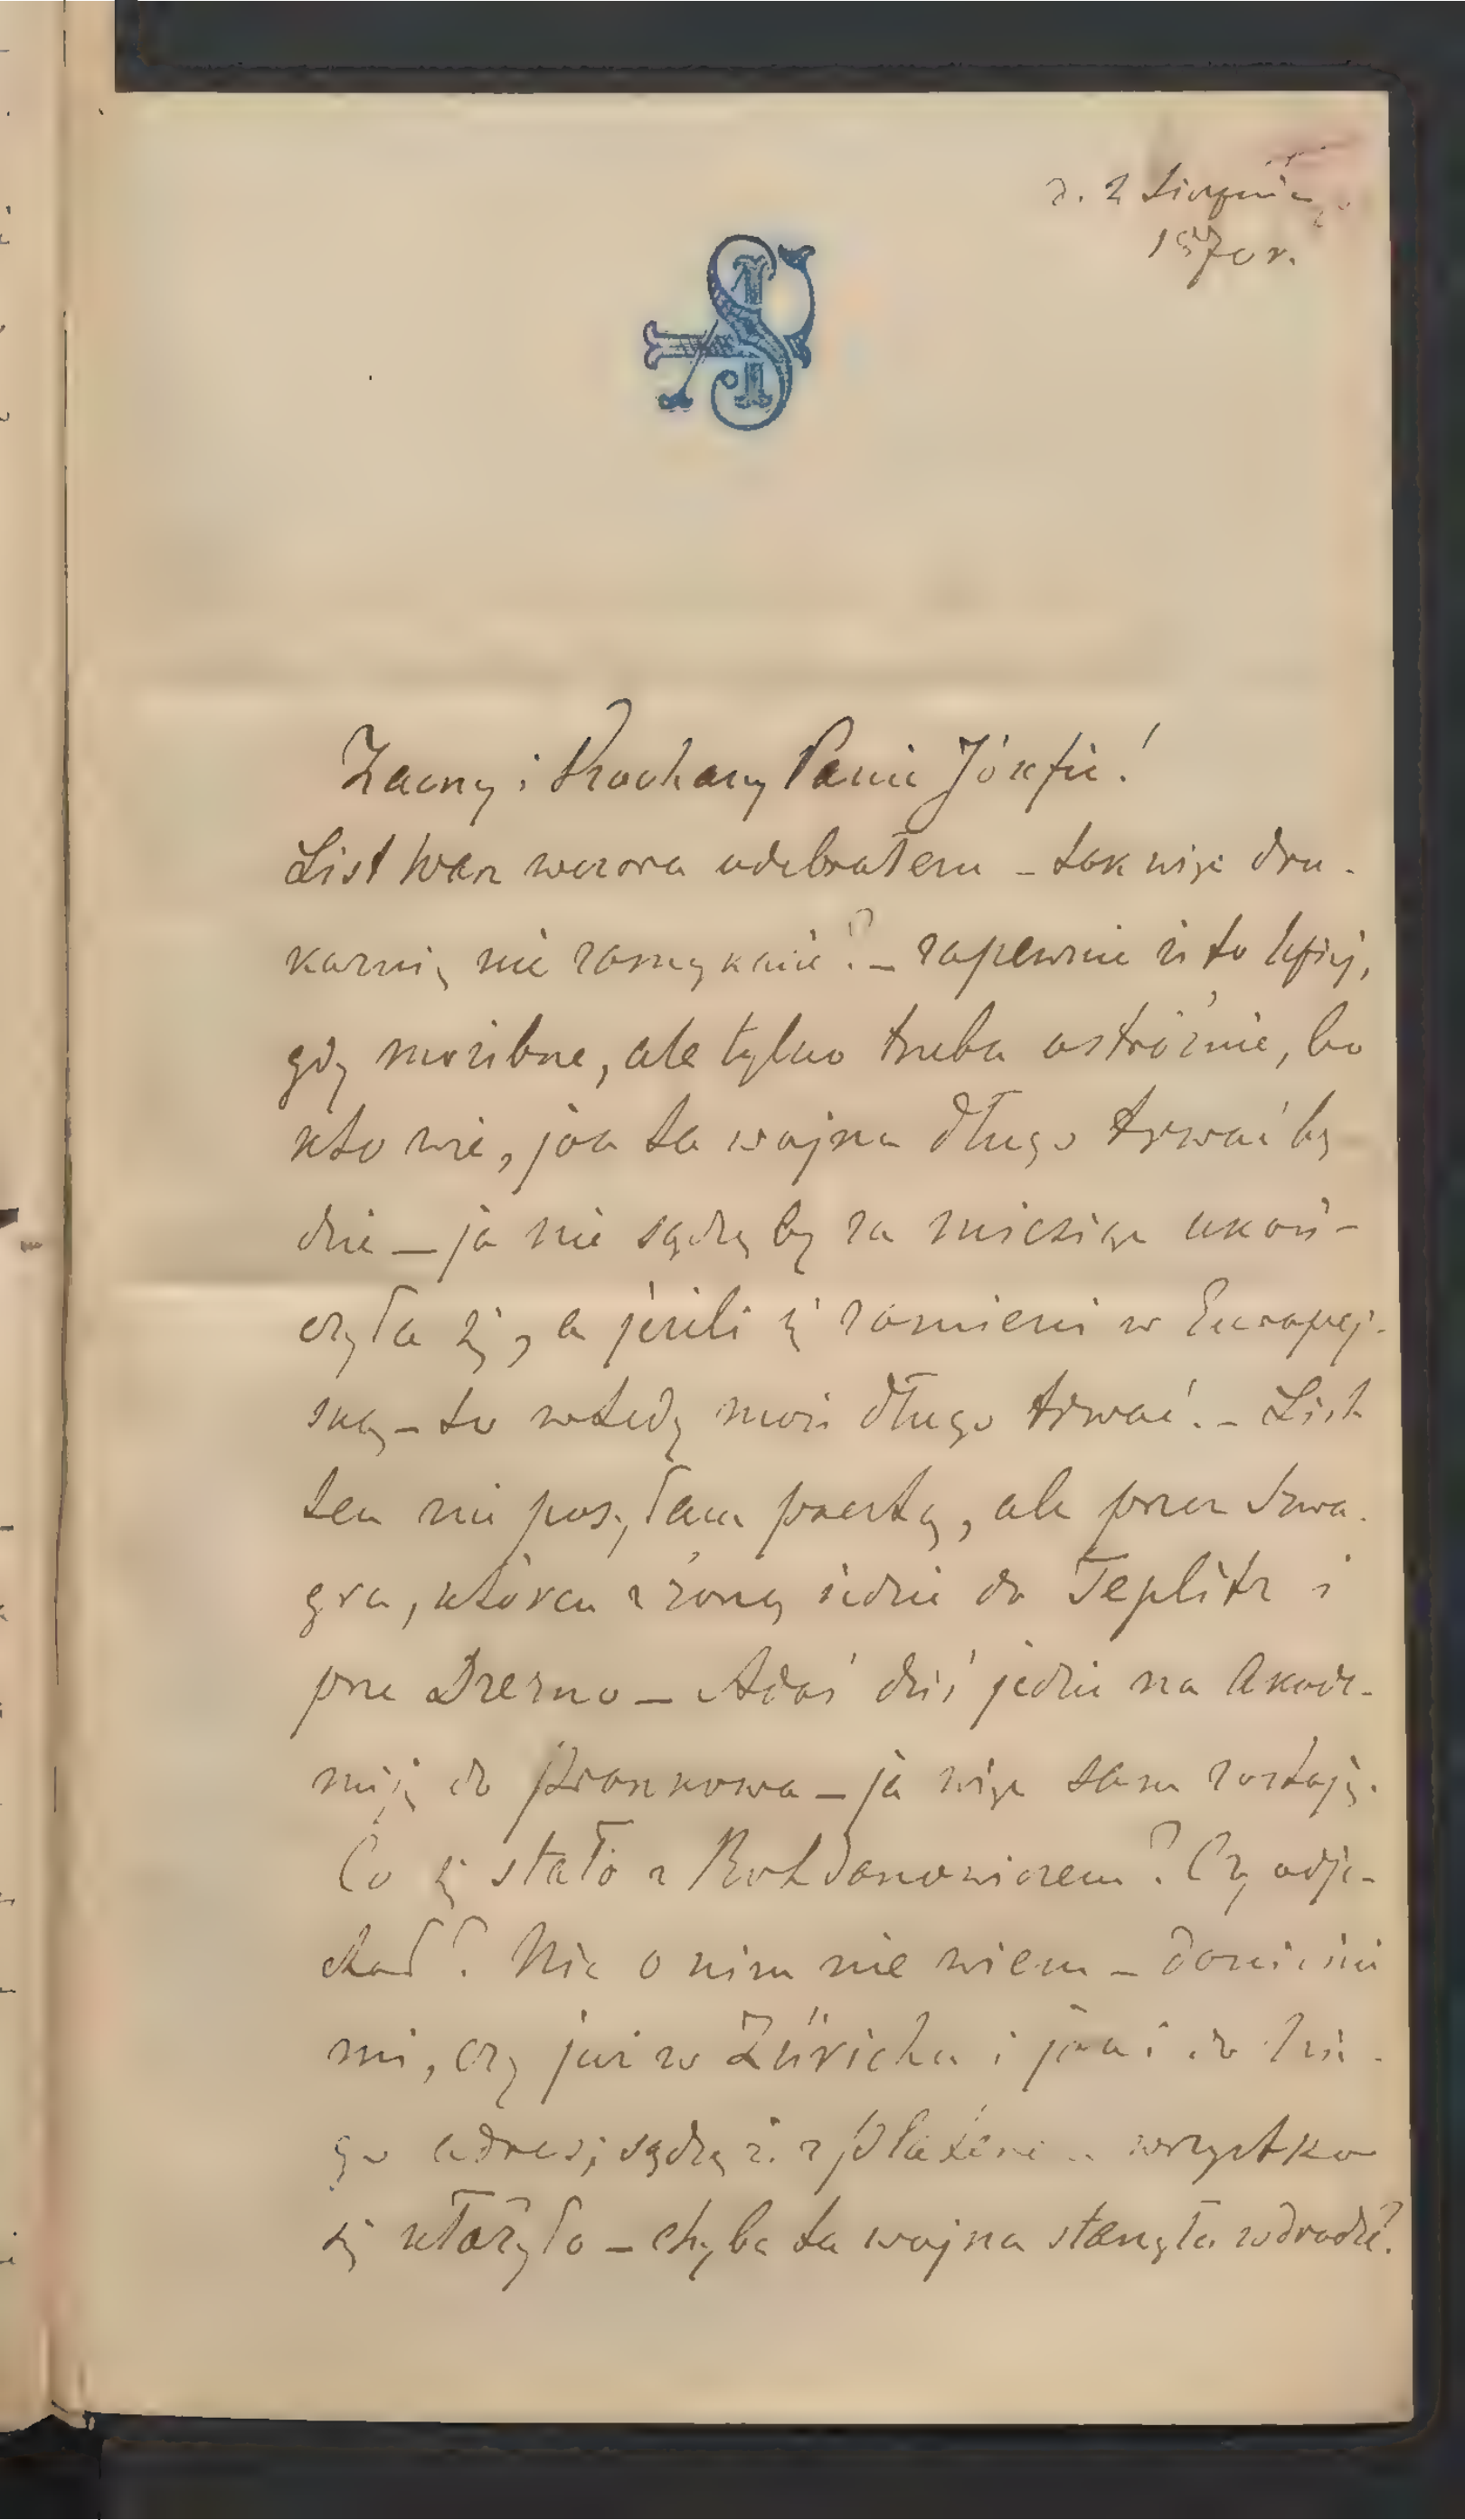 d. 2 Sierpnia
1870 r.
Zacny i Kochany Panie Józefie!
List Wasz wczora odebrałem – tak więc dru-
karnię nie zamykacie? – zapewnie iż to lepiej,
gdy możebne, ale tylko trzeba ostróżnie, bo
kto wie, jak ta wojna długo trwać bę
dzie – ja nie sądzę by za miesiąc ukoń-
czyła się, a jeżeli się zamieni w Europej-
ską – to wtedy może długo trwać. – List
ten nie posyłam pocztą, ale przez Szwa-
gra, który z żoną jedzie do Teplitz i
prze Drezno – Adaś dziś jedzie na Akade-
miję do Krakowa – ja więc sam zostaję.
Co się stało z Bohdanowiczem? Czy odje-
chał? Nic o nim nie wiem – donieście
mi, czy już w Zürichu i jaki do
go adres; sądzę iż z wszystko
się ułożyło – chyba ta wojna stanęła wdrodze?